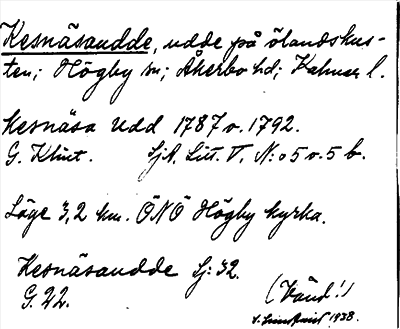 Kesnäsudde, udde på ölandskus-
ten; Högby sn; Åkerbo hd; Kalmar l.
Kesnäsa Udd 1787 o. 1792.
G. Klint. Sjk. Litt. V. N:o 5 o. 5 b.
Läge 3,2 km. ÖNÖ Högby kyrka.
Kesnäsaudde Sj: 32.
G. 22. (Vänd!)
1938.